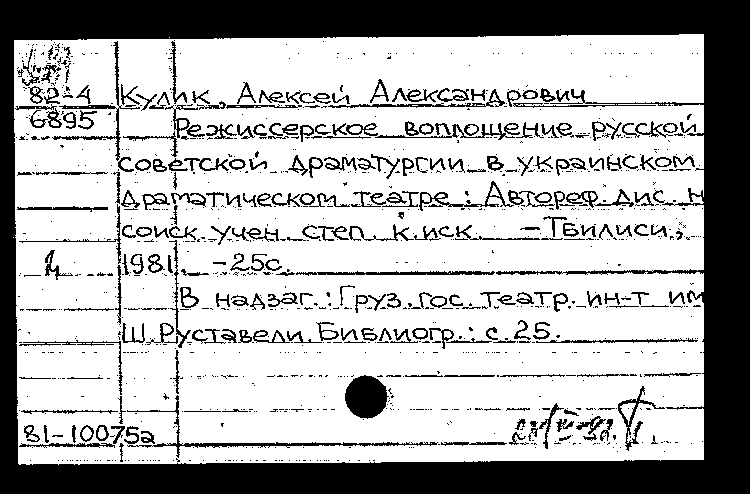 82-4 Кулик, Алексей Александрович
6895 Режиссерское воплощение русской
советской драматургии в украинском
драматическом театре : Автореф. дис. н
соиск. учен. степ. к. иск. - Тбилиси,
1981. - 25с.
В надзаг.: Груз. гос. театр. ин-т им
Ш. Руставели. Библиогр.: с. 25.
81-10075а